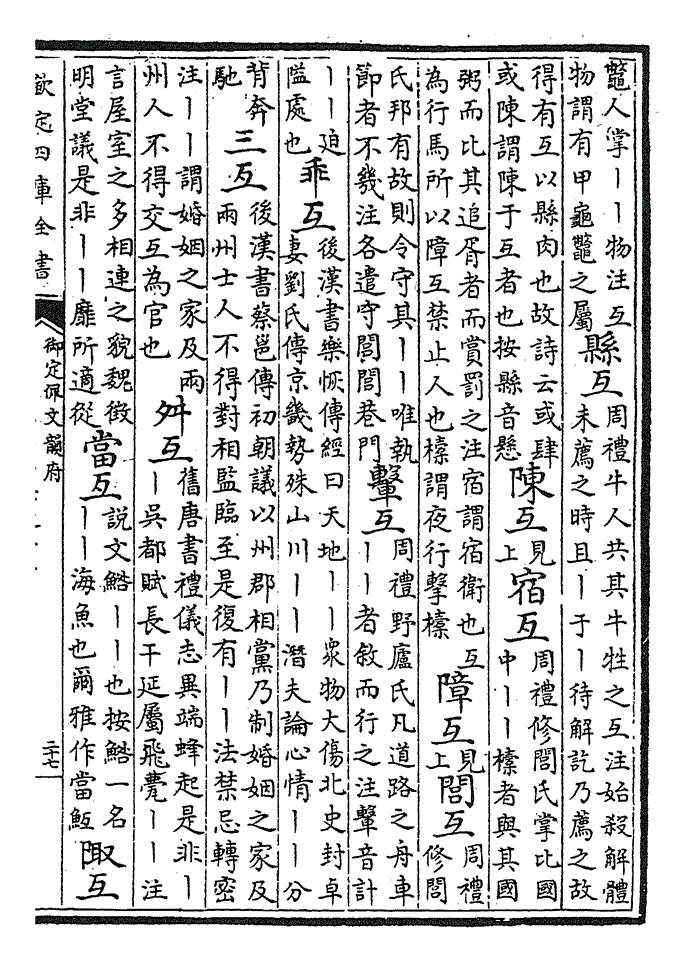 鼈人掌丨丨物注互
物謂有甲龜鼈之屬
縣互
周禮牛人共其牛牲之互注始殺解體
未薦之時且丨于丨待解訖乃薦之故
得有互以縣肉也故詩云或肆
或陳謂陳于互者也按縣音懸
陳互
見
上
宿互
周禮修閭氏掌比國
中丨丨㯓者與其國
粥而比其追胥者而賞罰之注宿謂宿衛也互
為行馬所以障互禁止人也㯓謂夜行擊㯓
障互
見
上
閭互
周禮
修閭
氏邦有故則令守其丨丨唯執
節者不幾注各遣守閭閭巷門
轚互
周禮野廬氏凡道路之舟車
丨丨者敘而行之注轚音計
丨丨廹
隘處也
乖互
後漢書樂恢傳經曰天地丨丨衆物大傷北史封卓
妻劉氏傳京畿勢殊山川丨丨潛夫論心情丨丨分
背奔
馳
三互
後漢書蔡邕傳初朝議以州郡相黨乃制婚姻之家及
兩州士人不得對相監臨至是復有丨丨法禁忌轉密
注丨丨謂婚姻之家及兩
州人不得交互為官也
舛互
舊唐書禮儀志異端蜂起是非丨
丨吳都賦長干延屬飛甍丨丨注
言屋室之多相連之貌魏徵
明堂議是非丨丨靡所適從
當互
說文鮥丨丨也按鮥一名
丨丨海魚也爾雅作當魱
陬互
欽定四庫全書
御定佩文韻府
二十七